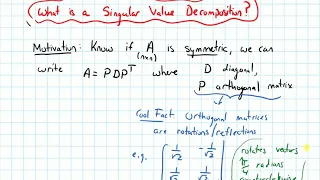 What is a Singular Value Decomposition?
Motivation: Know if A (n×n) is symmetric, we can
write A = PDPᵀ where D diagonal,
P orthogonal matrix
Cool Fact: Orthogonal matrices
are rotations/reflections
e.g. [1/√2 -1/√2
1/√2 1/√2
rotates vectors
π/4 radians
counterclockwise